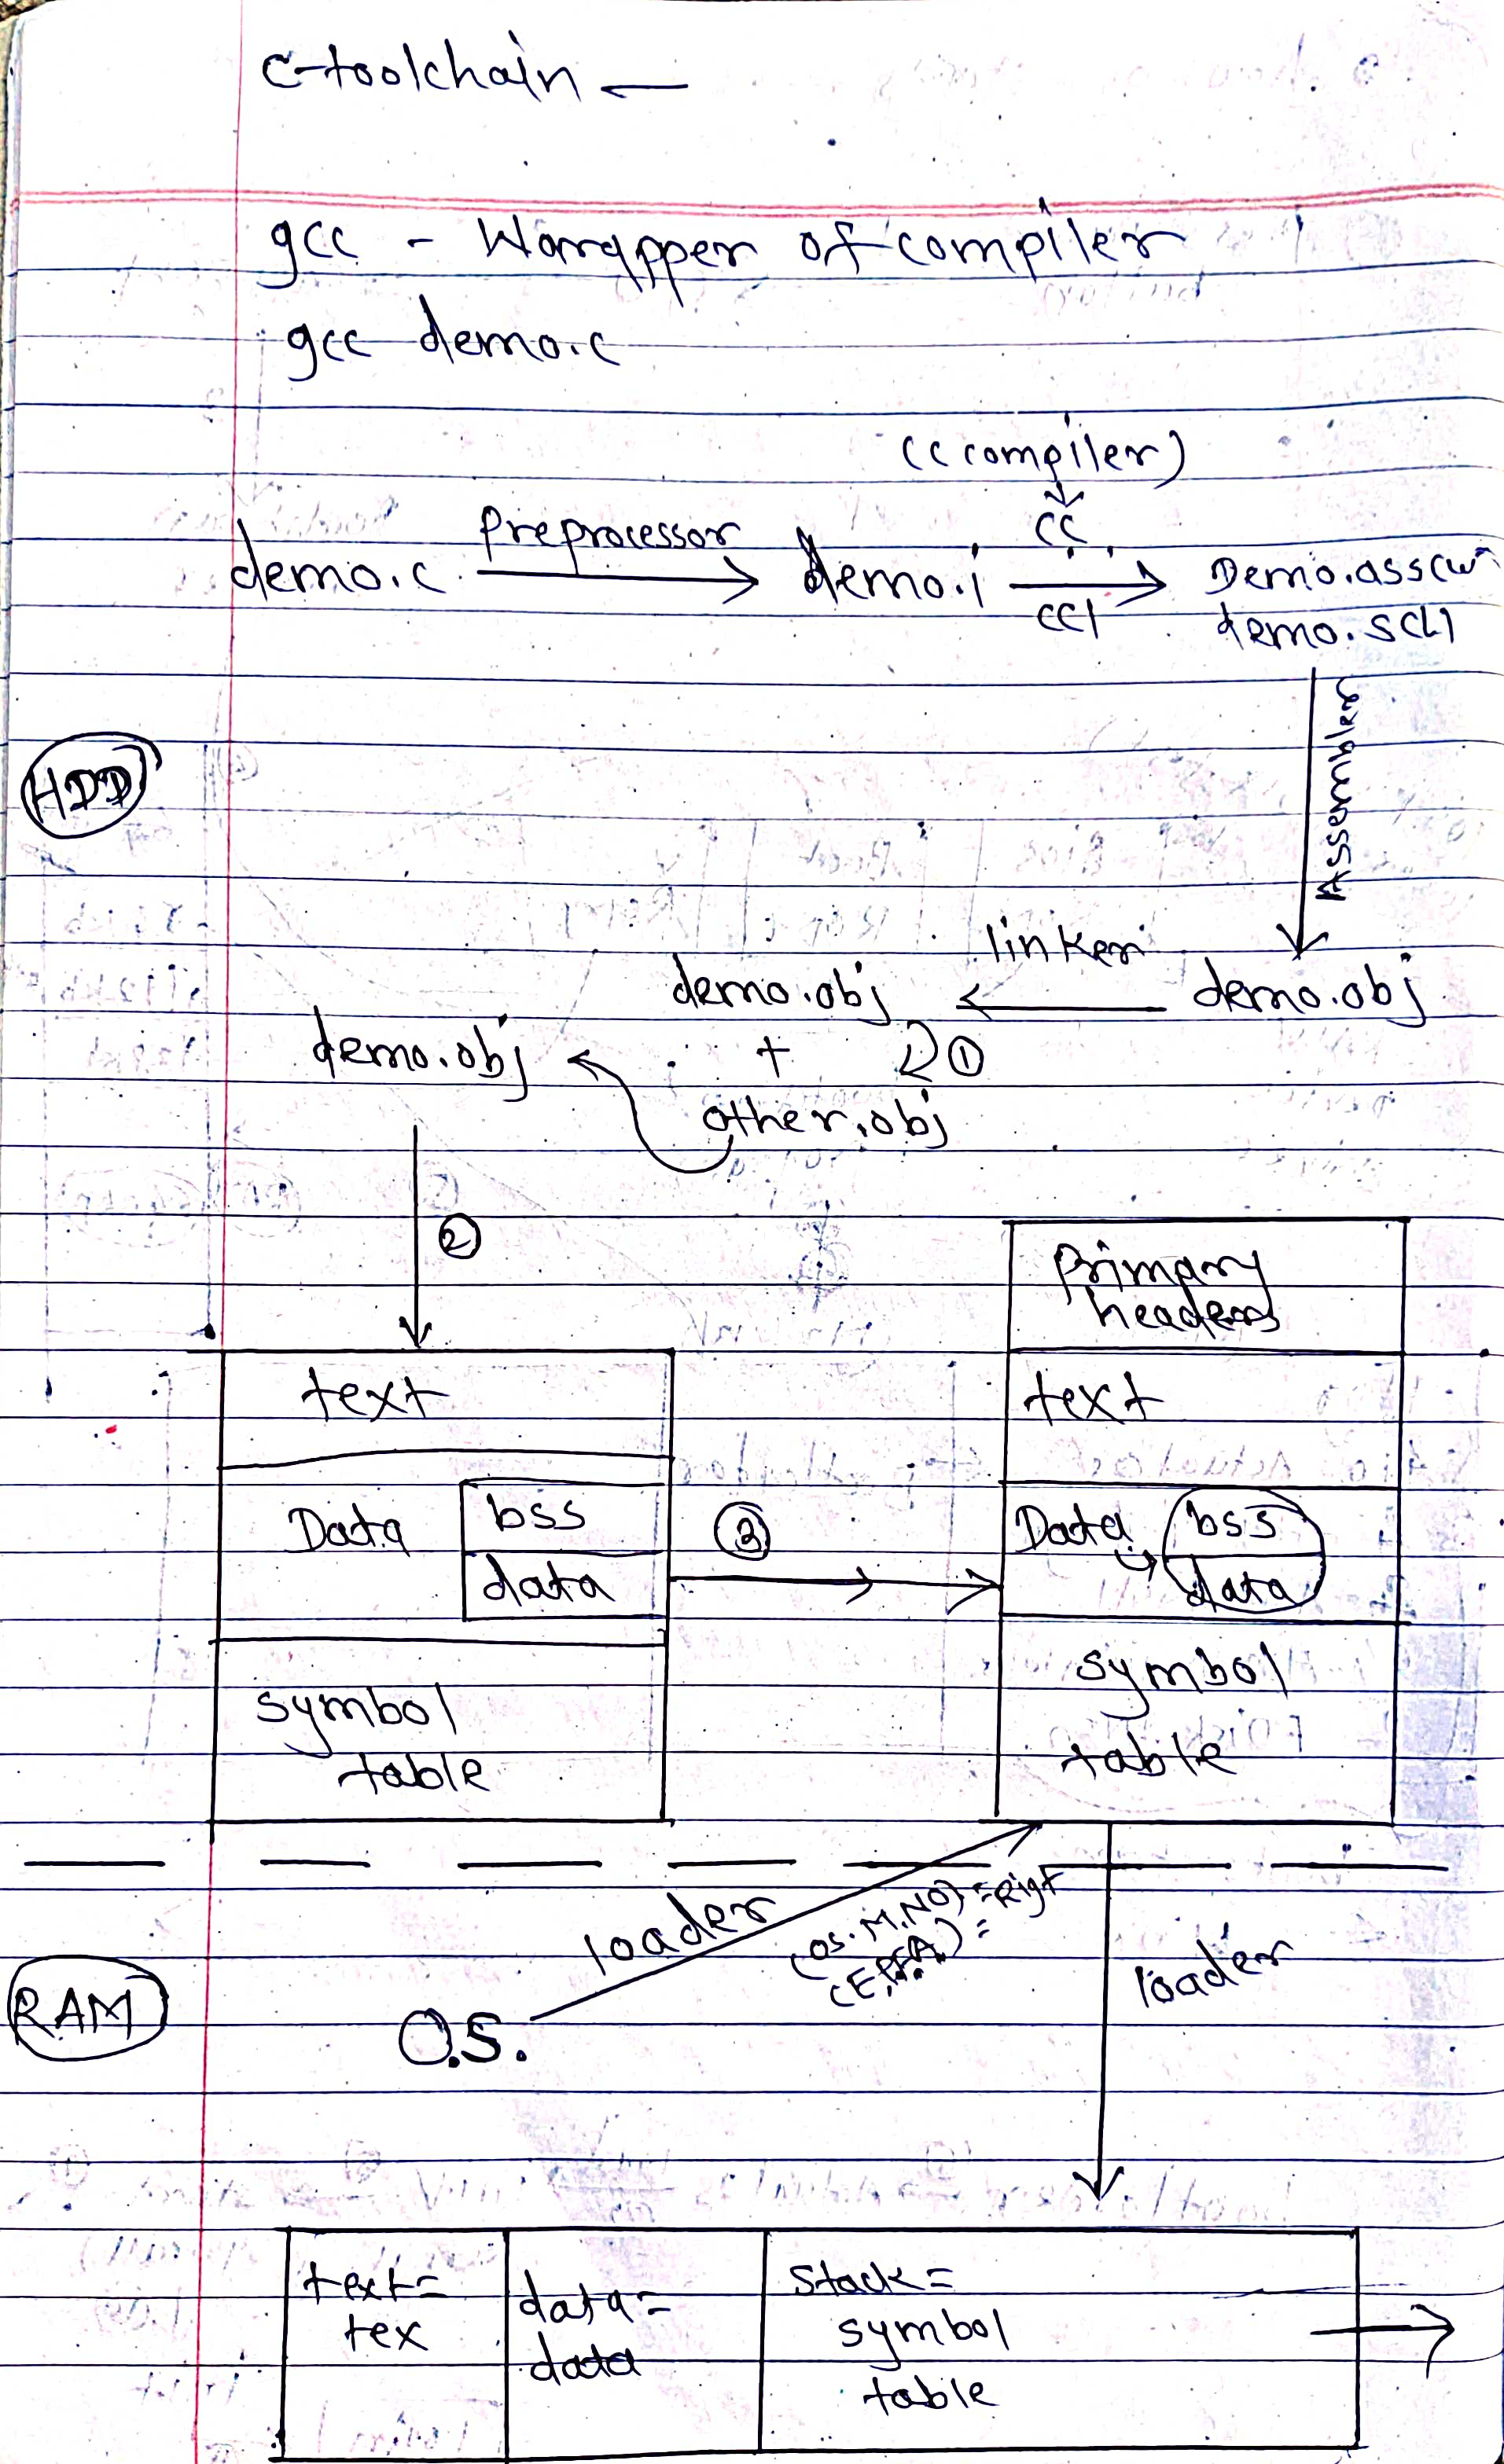 c-toolchain
gcc - Warapper of compiler
gcc demo.c
(c compiler)
Preprocessor
cc
demo.c
demo.i
cc1
Demo.ass(w
demo.s(L)
Assembler
HDD
linker
demo.obj
demo.obj
demo.obj
+
①
other.obj
②
Primary
headers
text
text
Data
bss
data
③
Data
bss
data
symbol
table
symbol
table
loader
(os. M.NO) = Rigt
(E.P.F.A.) =
loader
RAM
O.S.
text =
tex
data =
data
Stack =
symbol
table